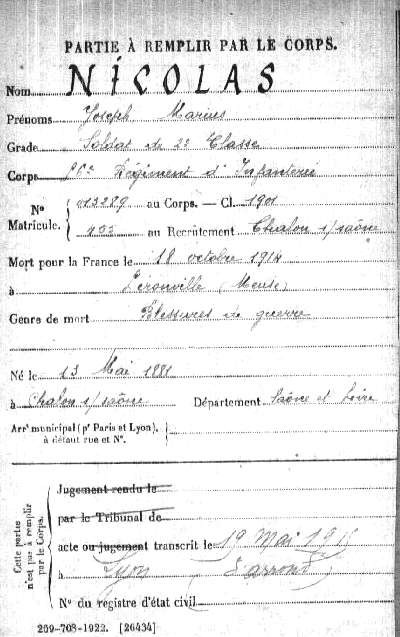 PARTIE À REMPLIR PAR LE CORPS.
Nom NICOLAS
Prénoms Joseph Marius
Grade Soldat de 2e Classe
Corps Régiment d'Infanterie
No Matricule. 013289 au Corps. — Cl. 1901
au Recrutement Chalon s/saône
Mort pour la France le 18 octobre 1914
à Lérouville (Meuse)
Genre de mort Blessures de guerre
Né le 13 Mai 1881
à Chalon s/saône Département Saône et Loire
Arrt municipal (pr Paris et Lyon),
à défaut rue et No.
Cette partie n'est pas à remplir par le Corps.
Jugement rendu le
par le Tribunal de
acte ou jugement transcrit le 19 Mai
à Lyon
No du registre d'état civil
259-708-1922. [26434]